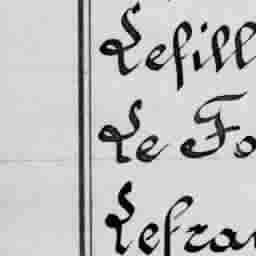 Lefill
Le Fo
Lefra